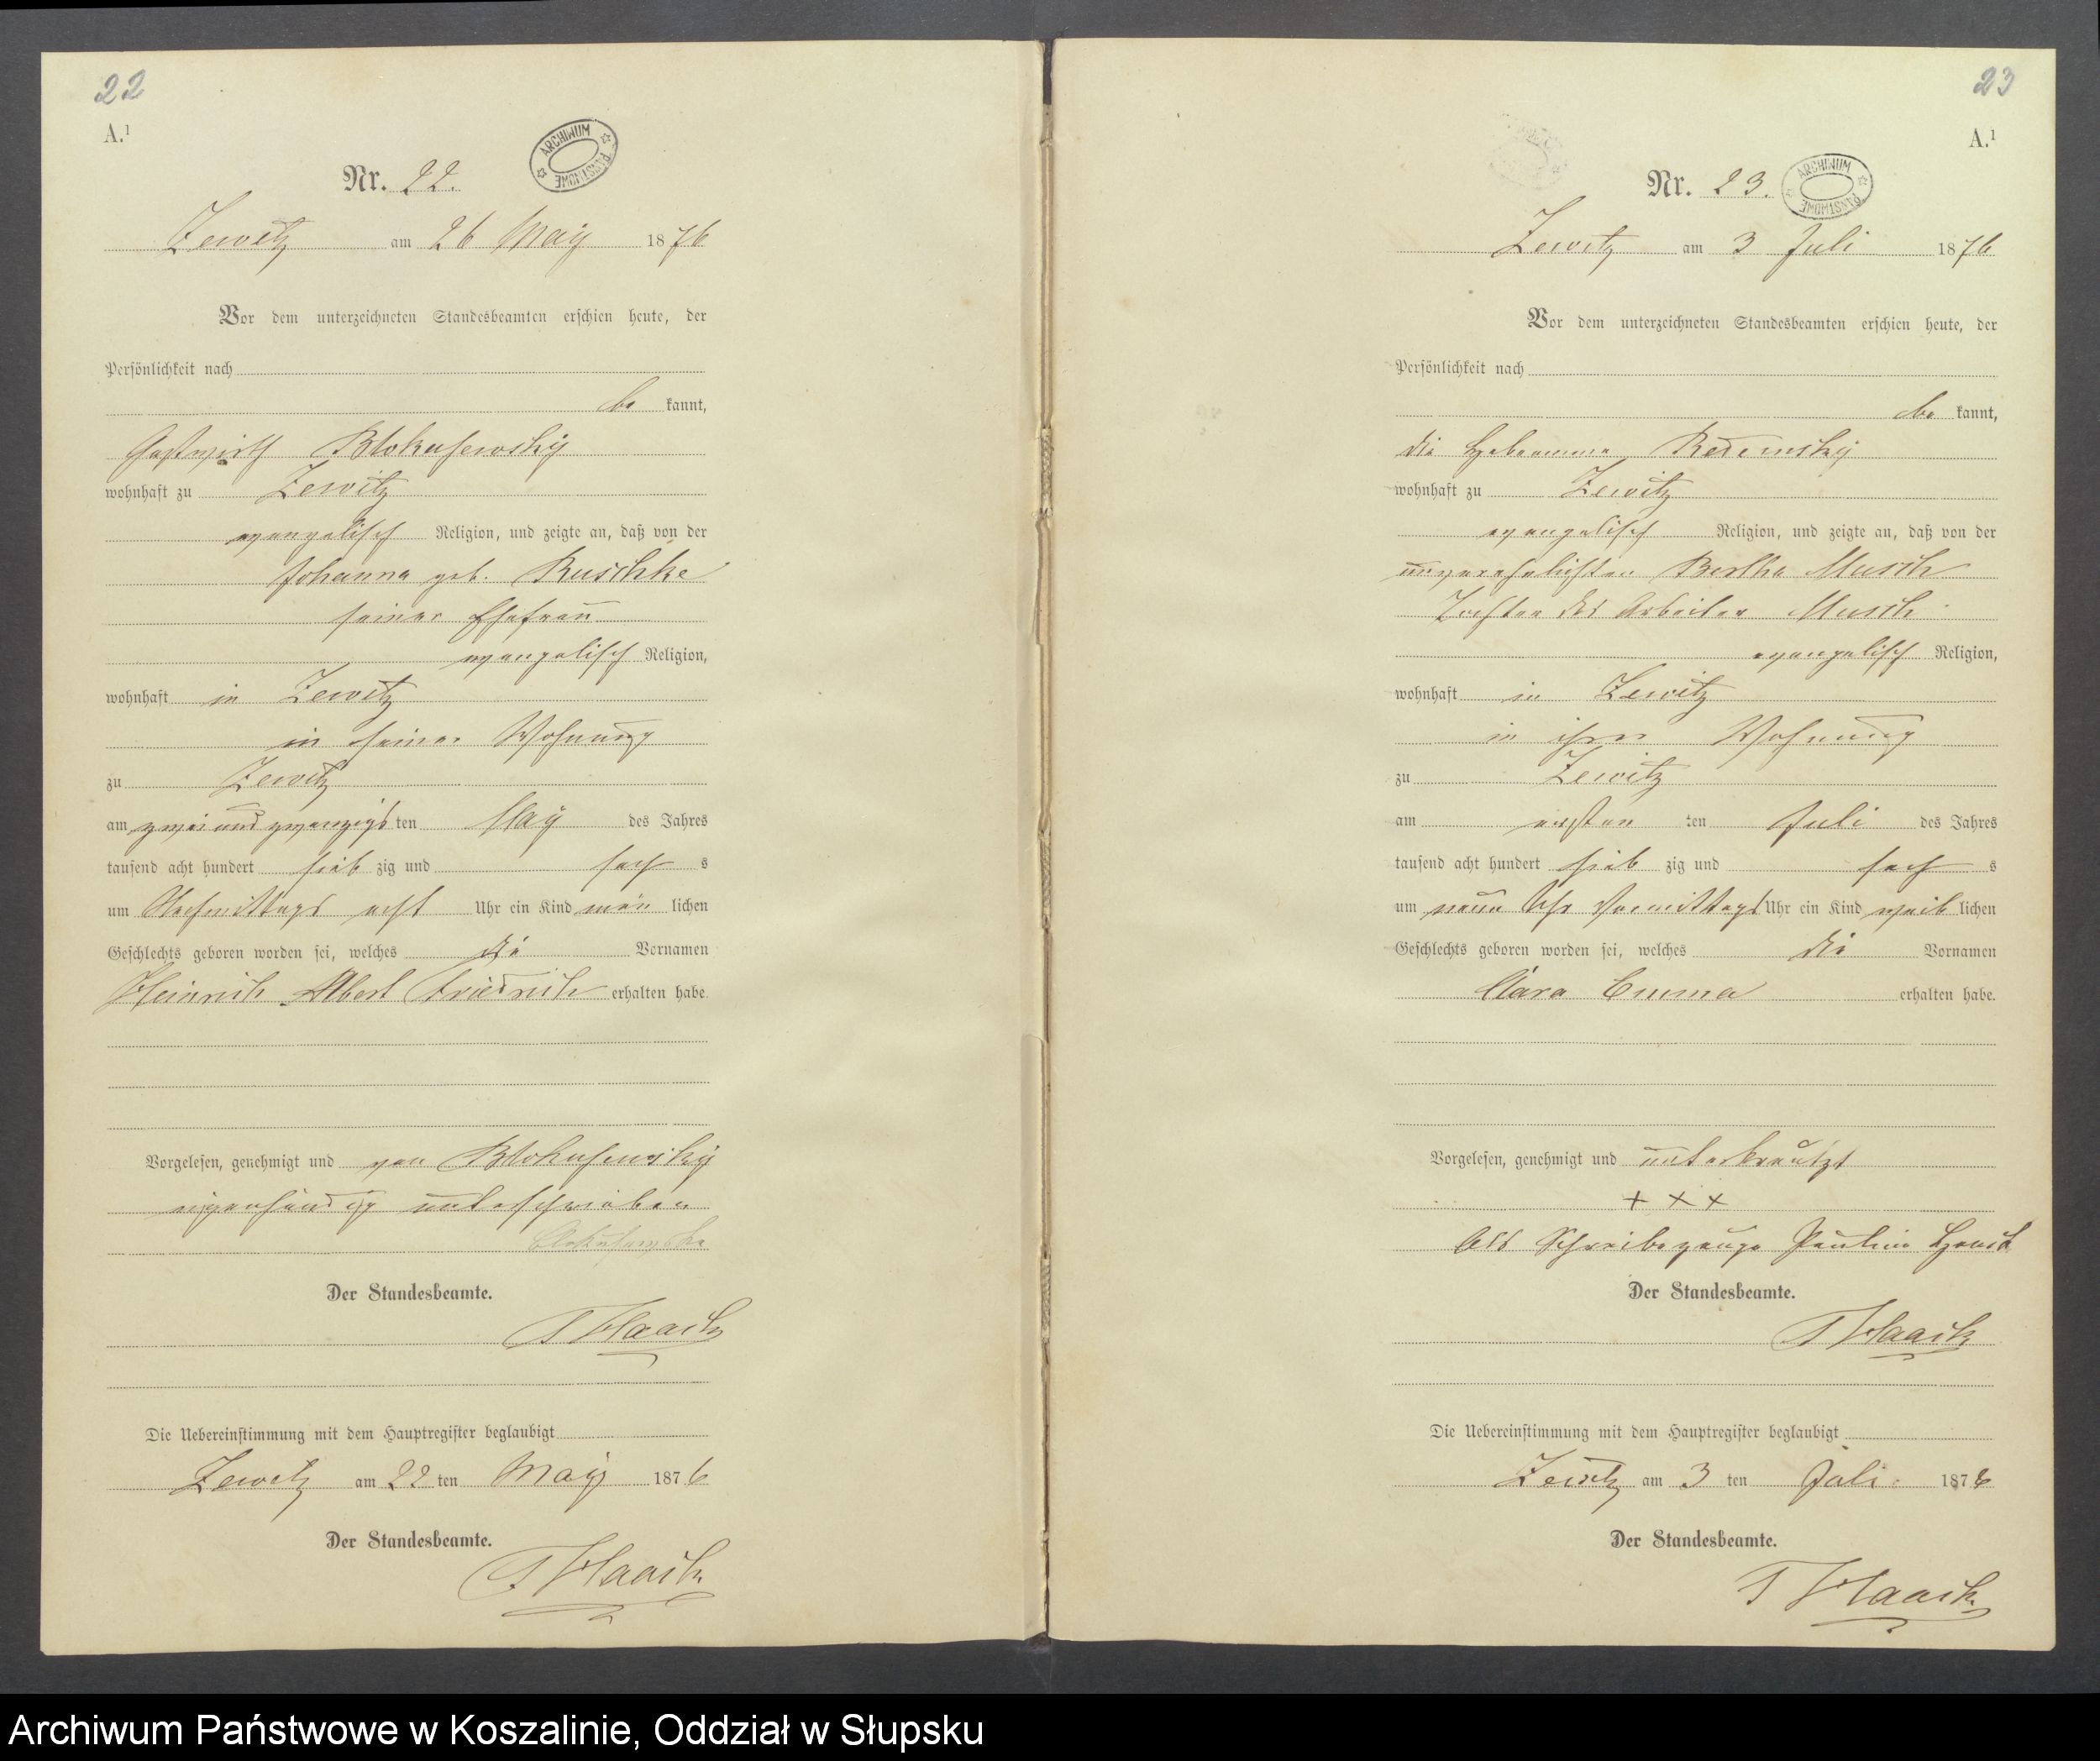 22
A.¹
ARCHIWUM PAŃSTWOWE
Nr. 22.
Zewitz am 26 May 1876
Vor dem unterzeichneten Standesbeamten erschien heute, der
Persönlichkeit nach
be kannt,
Gastwirth Blokusewsky
wohnhaft zu Zewitz
evangelisch Religion, und zeigte an, daß von der
Johanna geb. Ruschke
seiner Ehefrau
evangelisch Religion,
wohnhaft in Zewitz
in seiner Wohnung
zu Zewitz
am zwei und zwanzigs ten May des Jahres
tausend acht hundert sieb zig und sech s
um Nachmittags acht Uhr ein Kind män lichen
Geschlechts geboren worden sei, welches die Vornamen
Heinrich Albert Friedrich erhalten habe.
Vorgelesen, genehmigt und von Blokusewsky
eigenhändig unterschrieben
Der Standesbeamte.
Haack
Die Uebereinstimmung mit dem Hauptregister beglaubigt
Zewitz am 22 ten May 1876
Der Standesbeamte.
Haack
23
A.¹
ARCHIWUM PAŃSTWOWE
Nr. 23.
Zewitz am 3 Juli 1876
Vor dem unterzeichneten Standesbeamten erschien heute, der
Persönlichkeit nach
be kannt,
die Hebamme
wohnhaft zu Zewitz
evangelisch Religion, und zeigte an, daß von der
unverehelichten Bertha Musch
Tochter des Arbeiter Musch
evangelisch Religion,
wohnhaft in Zewitz
in ihrer Wohnung
zu Zewitz
am ersten ten Juli des Jahres
tausend acht hundert sieb zig und sech s
um neun Uhr Vormittags Uhr ein Kind weib lichen
Geschlechts geboren worden sei, welches die Vornamen
Clara Emma erhalten habe.
Vorgelesen, genehmigt und unterkreutzt
+ + +
Als Schreibezeuge Pauline
Der Standesbeamte.
Haack
Die Uebereinstimmung mit dem Hauptregister beglaubigt
Zewitz am 3 ten Juli 1876
Der Standesbeamte.
Haack
Archiwum Państwowe w Koszalinie, Oddział w Słupsku